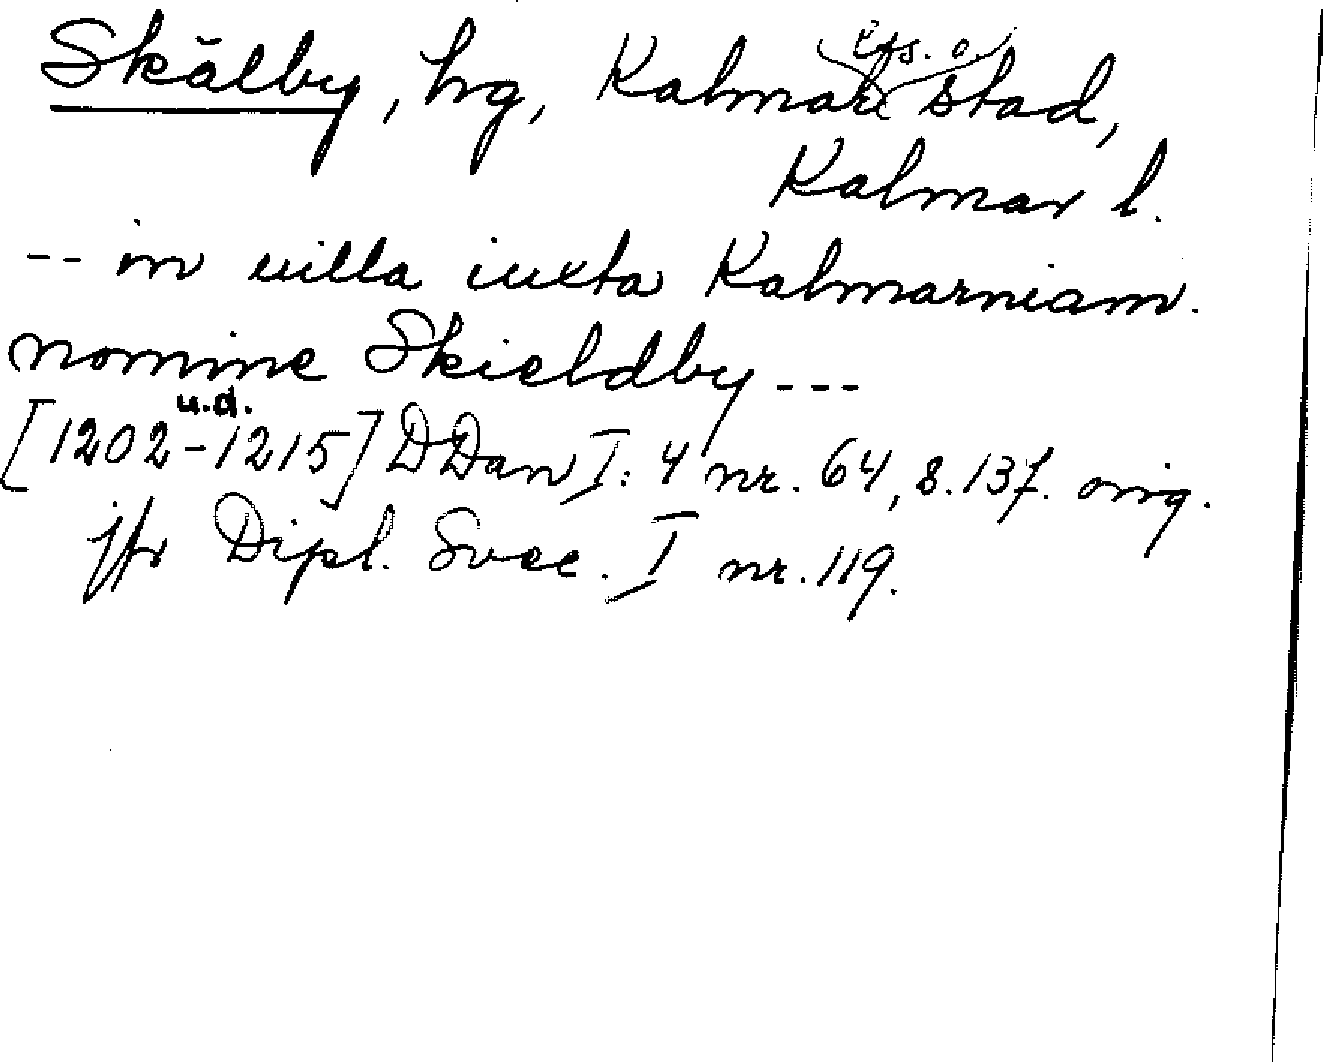 Skälby, hg, Kalmar lfs. o. stad,
Kalmar l.
-- in uilla iuxta Kalmarniam.
nomine Skieldby ---
[1202-1215] u.d. DDan I: 4 nr. 64, s. 137. orig.
jfr Dipl. Svec. I nr. 119.